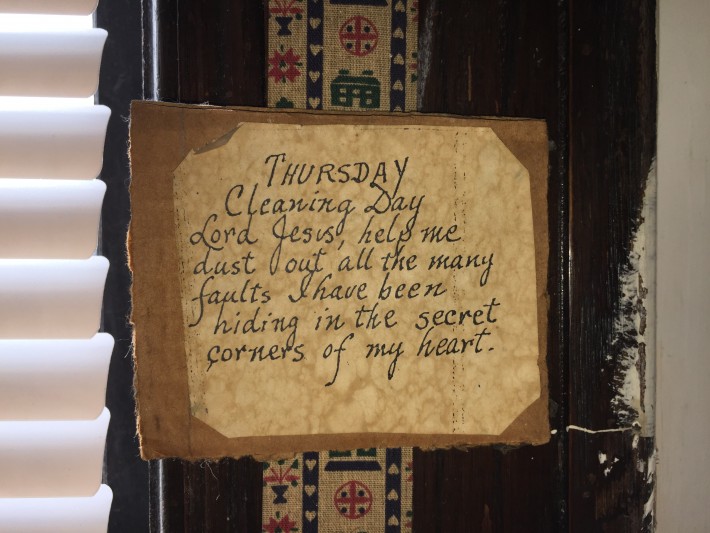 THURSDAY
Cleaning Day
Lord Jesus, help me
dust out all the many
faults I have been
hiding in the secret
corners of my heart.